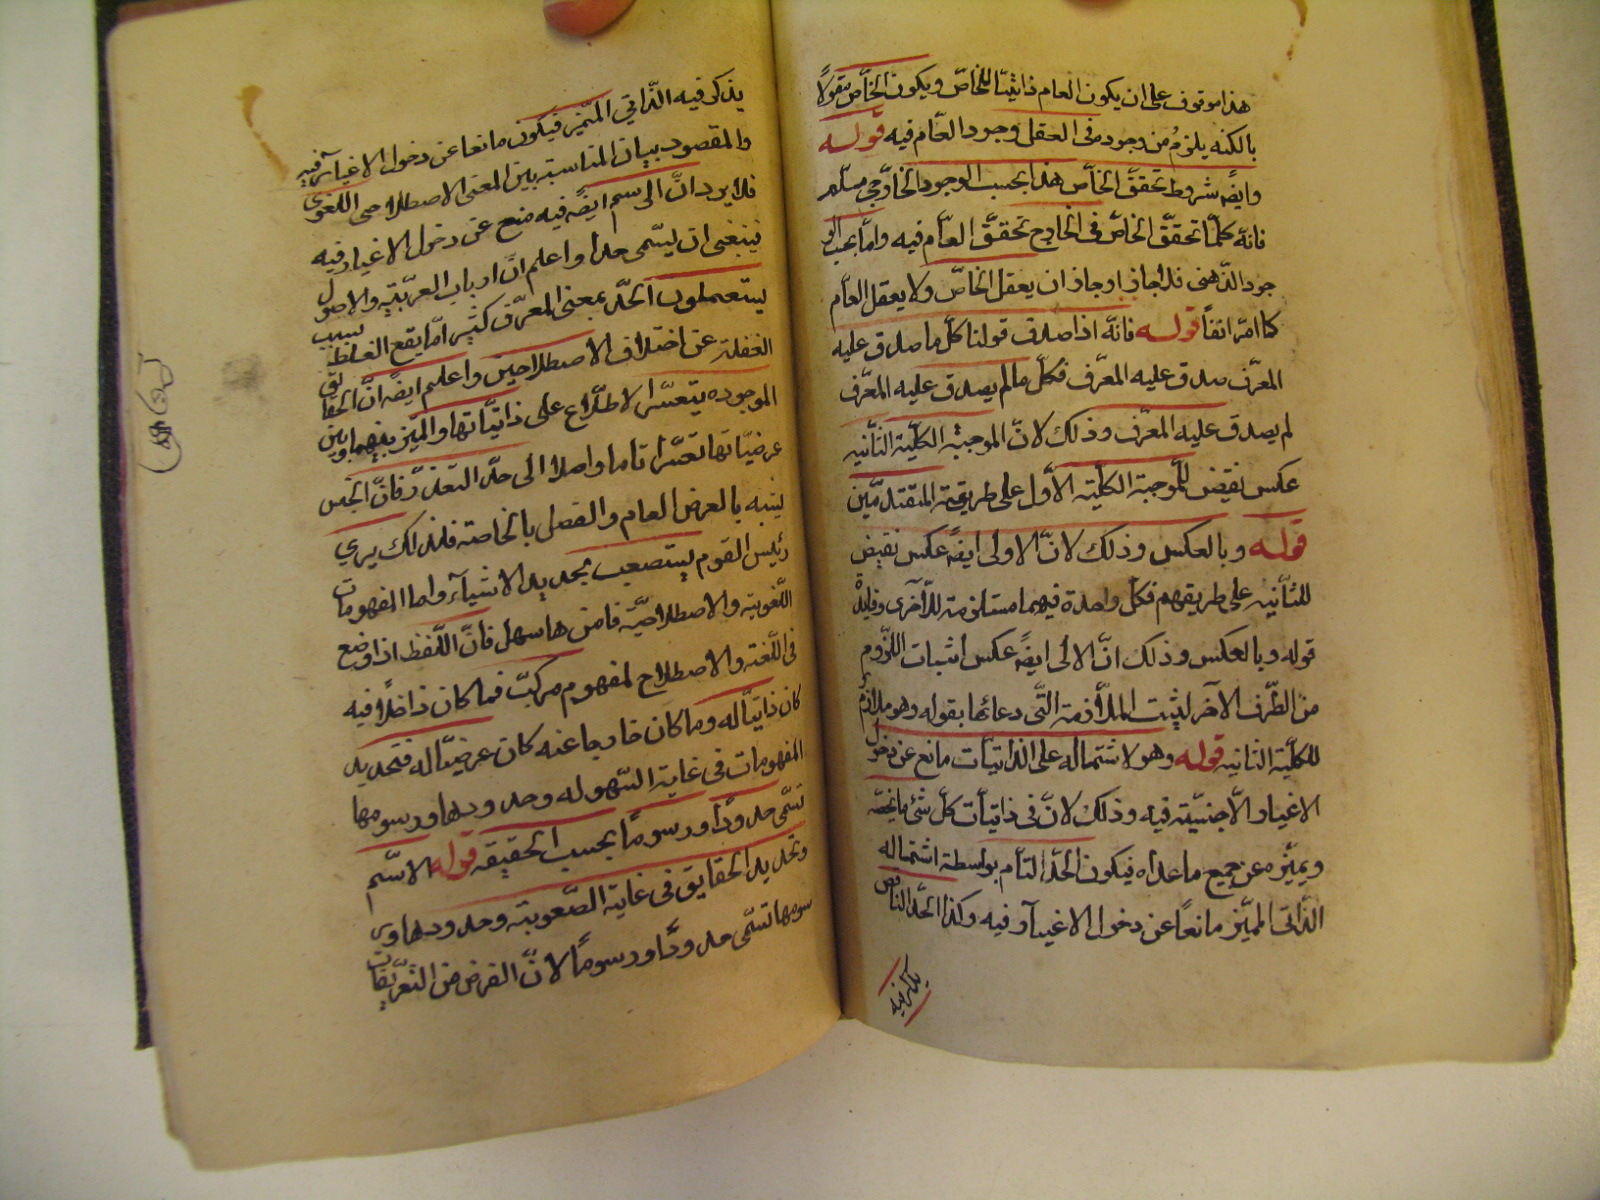 هذا موقوف على ان يكون العام ذاتيّا للخاصّ ويكون الخاصّ مقولًا
بالكنه يلزم من وجوده فى العقل وجود العام فيه قوله
وايضً شروط تحقّق الخاصّ هذا بحسب الوجود الخارجي مسلّم
فانه كلّما تحقّق الخاصّ فى الخارج تحقّق العامّ فيه وامّا بحسب الو
جود الذّهنى فلا لجاز اوجاز ان يعقل الخاصّ ولا يعقل العامّ
كما امرّ انفًا قوله فانّه اذا صدق قولنا كلّ ما صدق عليه
المعرّف صدق عليه المعرّف فكلّ ما لم يصدق عليه المعرّف
لم يصدق عليه المعرّف وذلك لانّ الموجبة الكلّية الثّانيه
عكس نقيض للموجبة الكليّة الاوّل على طريقة المتقدّمين
قوله وبالعكس وذلك لانّ الاولى ايضً عكس نقيض
للثّانيه على طريقهم فكلّ واحدة فيهما مستلزمة للآخرى وفايدة
قوله وبالعكس وذلك انّ الالى ايضً عكس اثبات اللّزوم
من الطّرف الآخر ليثبت الملآزمة التّى دعائها بقوله وهو ملازم
للكليّة الثانيه قوله وهو لاشتماله على الذاتيّات مانع عن دخول
الاغيار الّاجنبيّة فيه وذلك لانّ فى ذاتيّات كلّ شئ ما يخصّه
ويميّزه عن جميع ما عداه فيكون الحدّ التآم بواسطة اشتماله
الذّاتى المميّز مانعًا عن دخول الاغيآر فيه وكذا الحدّ الناقص
يذكر فيه
يذكر فيه الذّاتي المميّز فيكون مانعا عن دخول الاغيآر فيه
والمقصود بيان المناسبة بين المعنى الاصطلاحى اللغوى
فلا يرد انّ الرسم ايضً فيه منع عن دخول الاغيار فيه
فينبغى ان يسمّى حدا واعلم انّ ارباب العربيّة والاصول
يستعملون الحدّ بمعنى المعرّف كثيرا مّا يقع الغلط بسبب
الغفلة عن اختلاف الاصطلاحين واعلم ايضً انّ الحقايق
الموجوده يتعسّر الاطّلاع على ذاتيّاتها والميّز بينهما وبين
عرضيّاتها تعسّرا تاما واصلا الى حدّ التعذّر فانّ الجنس
يشبه بالعرض العام والفصل بالخاصة فلذلك يرى
رئيس القوم يستصعب تحديد الاشيآء واما المفهومات
اللّغوية والاصطلاحيّه فامرها سهل فانّ اللّفظ اذا وضع
فى اللّغة والاصطلاح لمفهوم مركبّ فما كان داخلًا فيه
كان ذاتيّا له وما كان خارجا عنه كان عرضيّا له فتحديد
المفهومات فى غاية السّهوله وحدودها ورسومها
تسمّى حدودًا ورسومًا بحسب الحقيقه قوله الاسّم
وتحديد الحقايق فى غاية الصّعوبة وحدودها ور
سومها تسمّى حدودًا ورسومًا لانّ الغرض من التعريفات